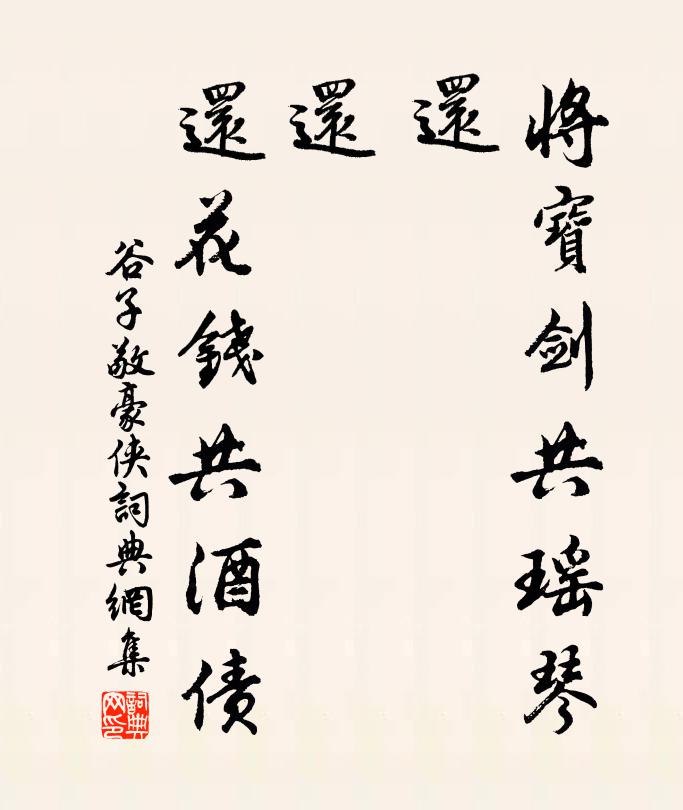 將寶劍共瑶琴
還
還
還花錢共酒债
谷子敬豪侠詞典網集
詞典
网印